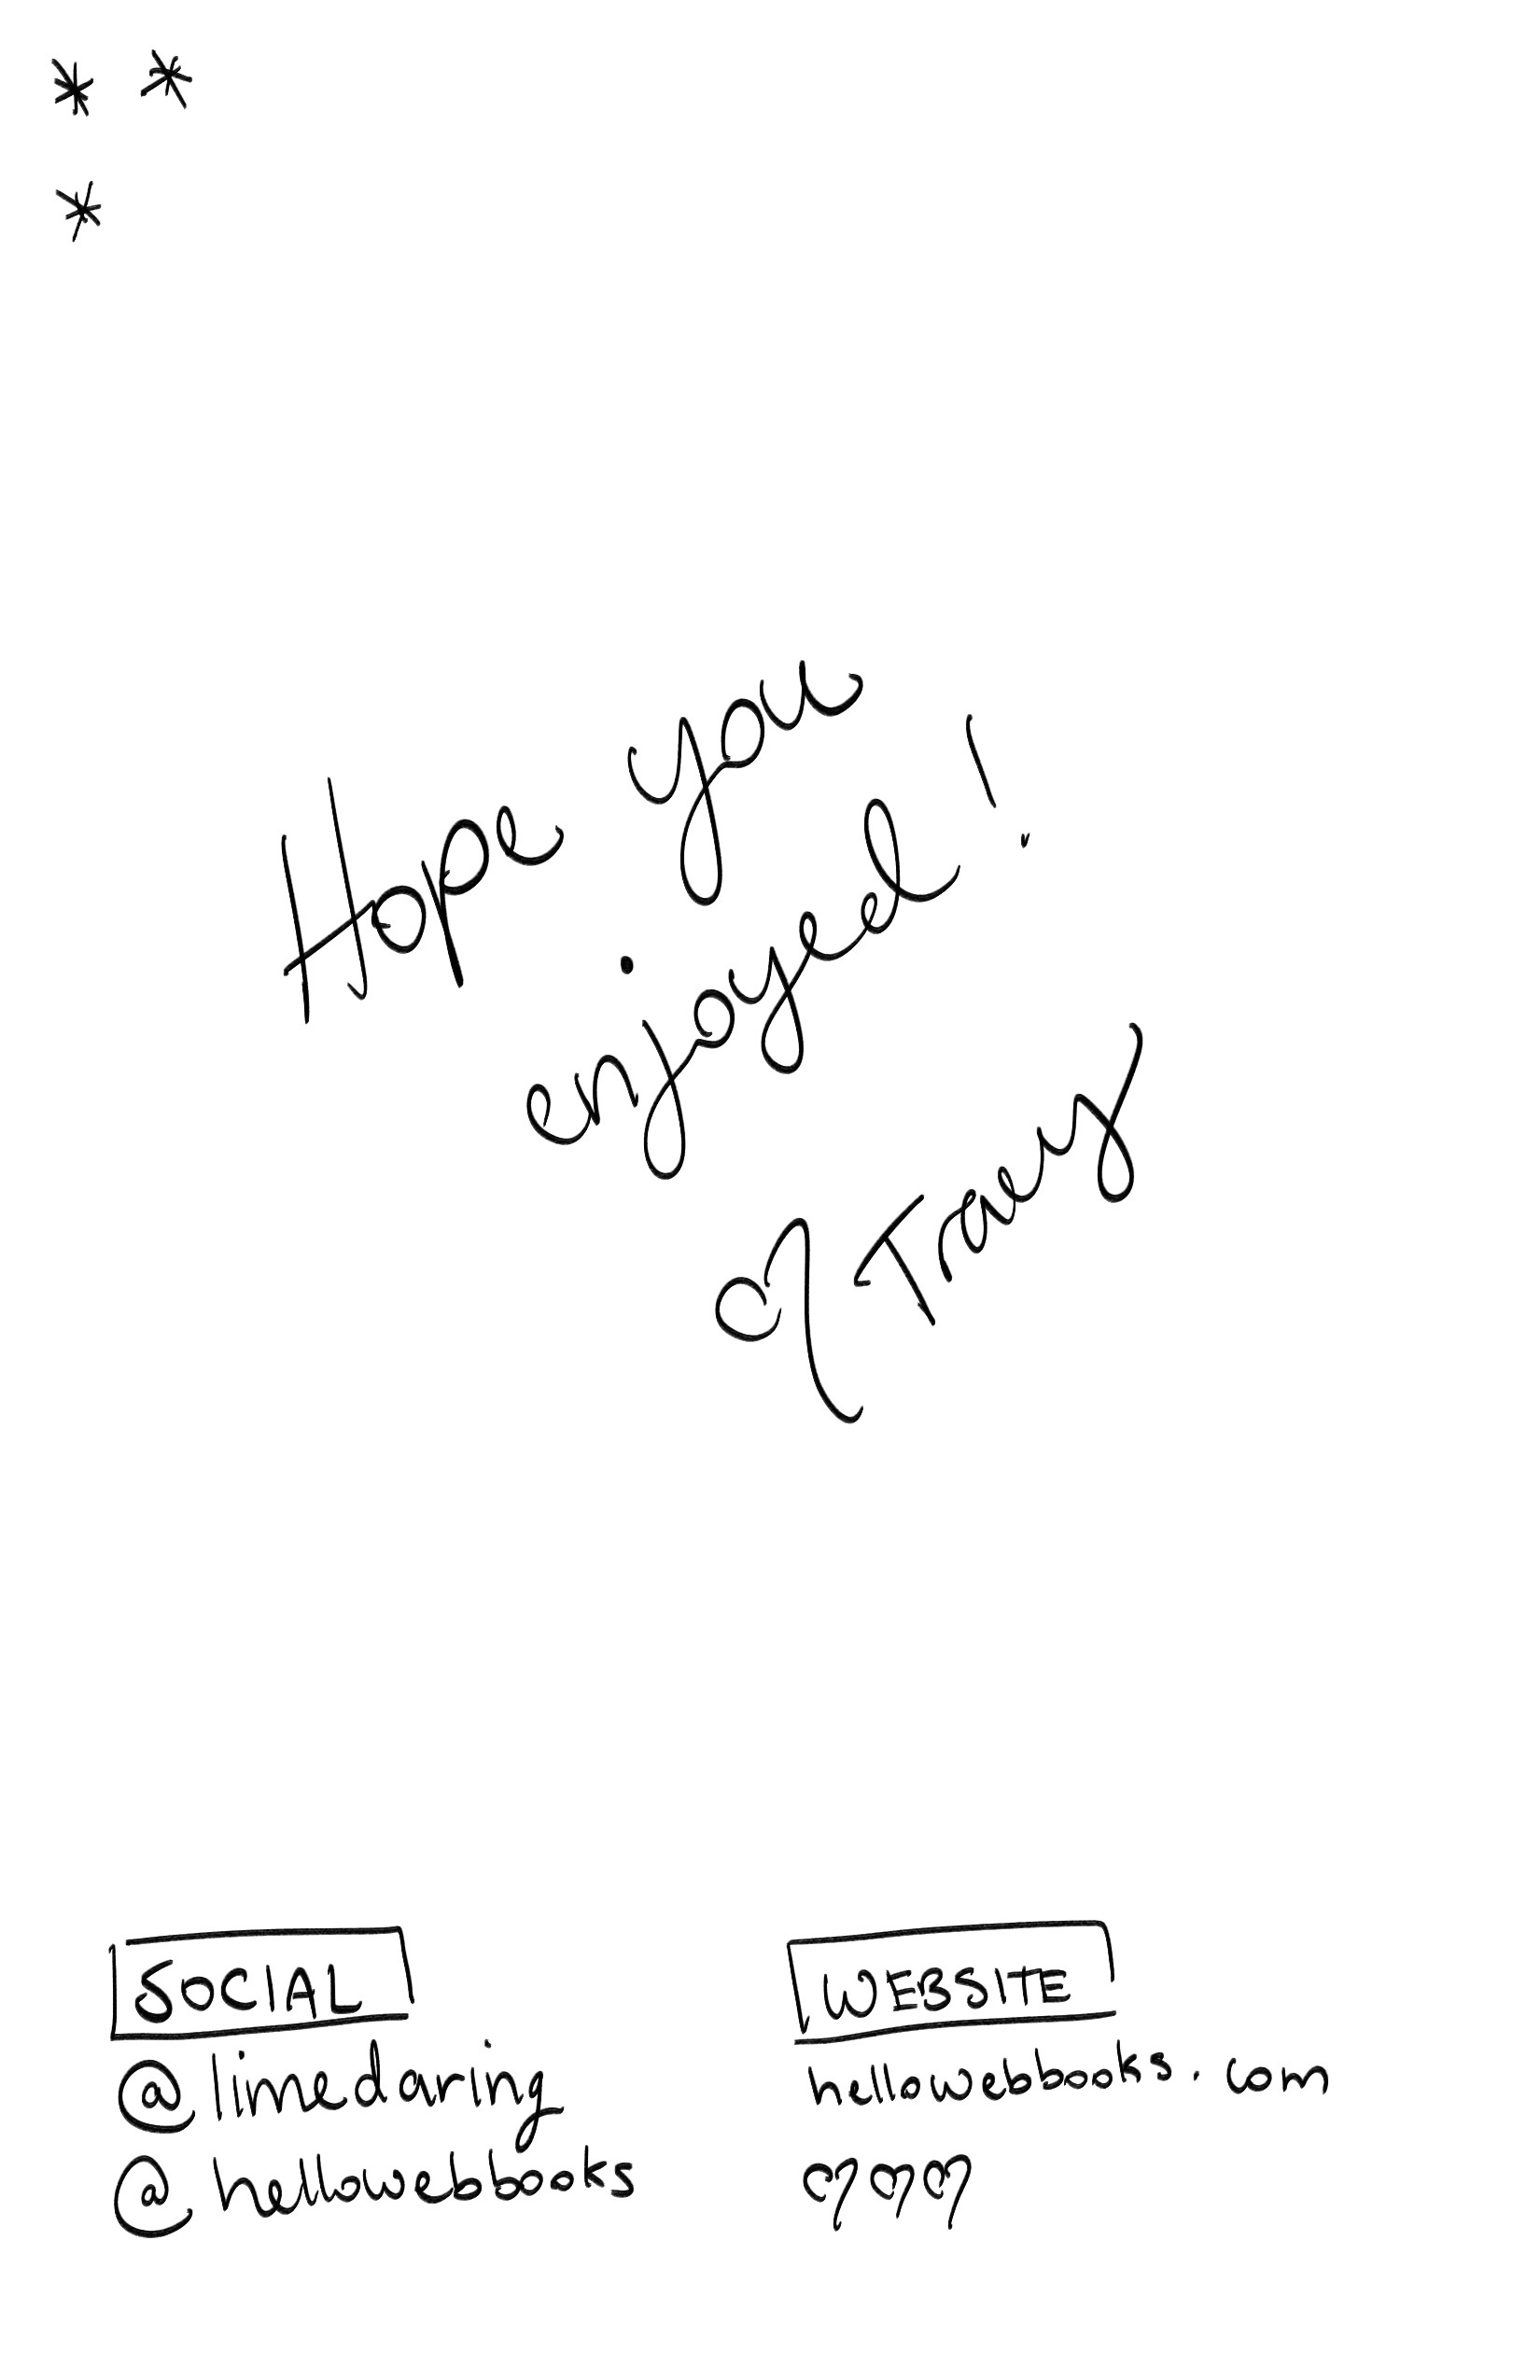 * *
*
Hope you
enjoyed!
♡ Tracy
SOCIAL
@limedaring
@hellowebbooks
WEBSITE
hellowebbooks.com
♡♡♡